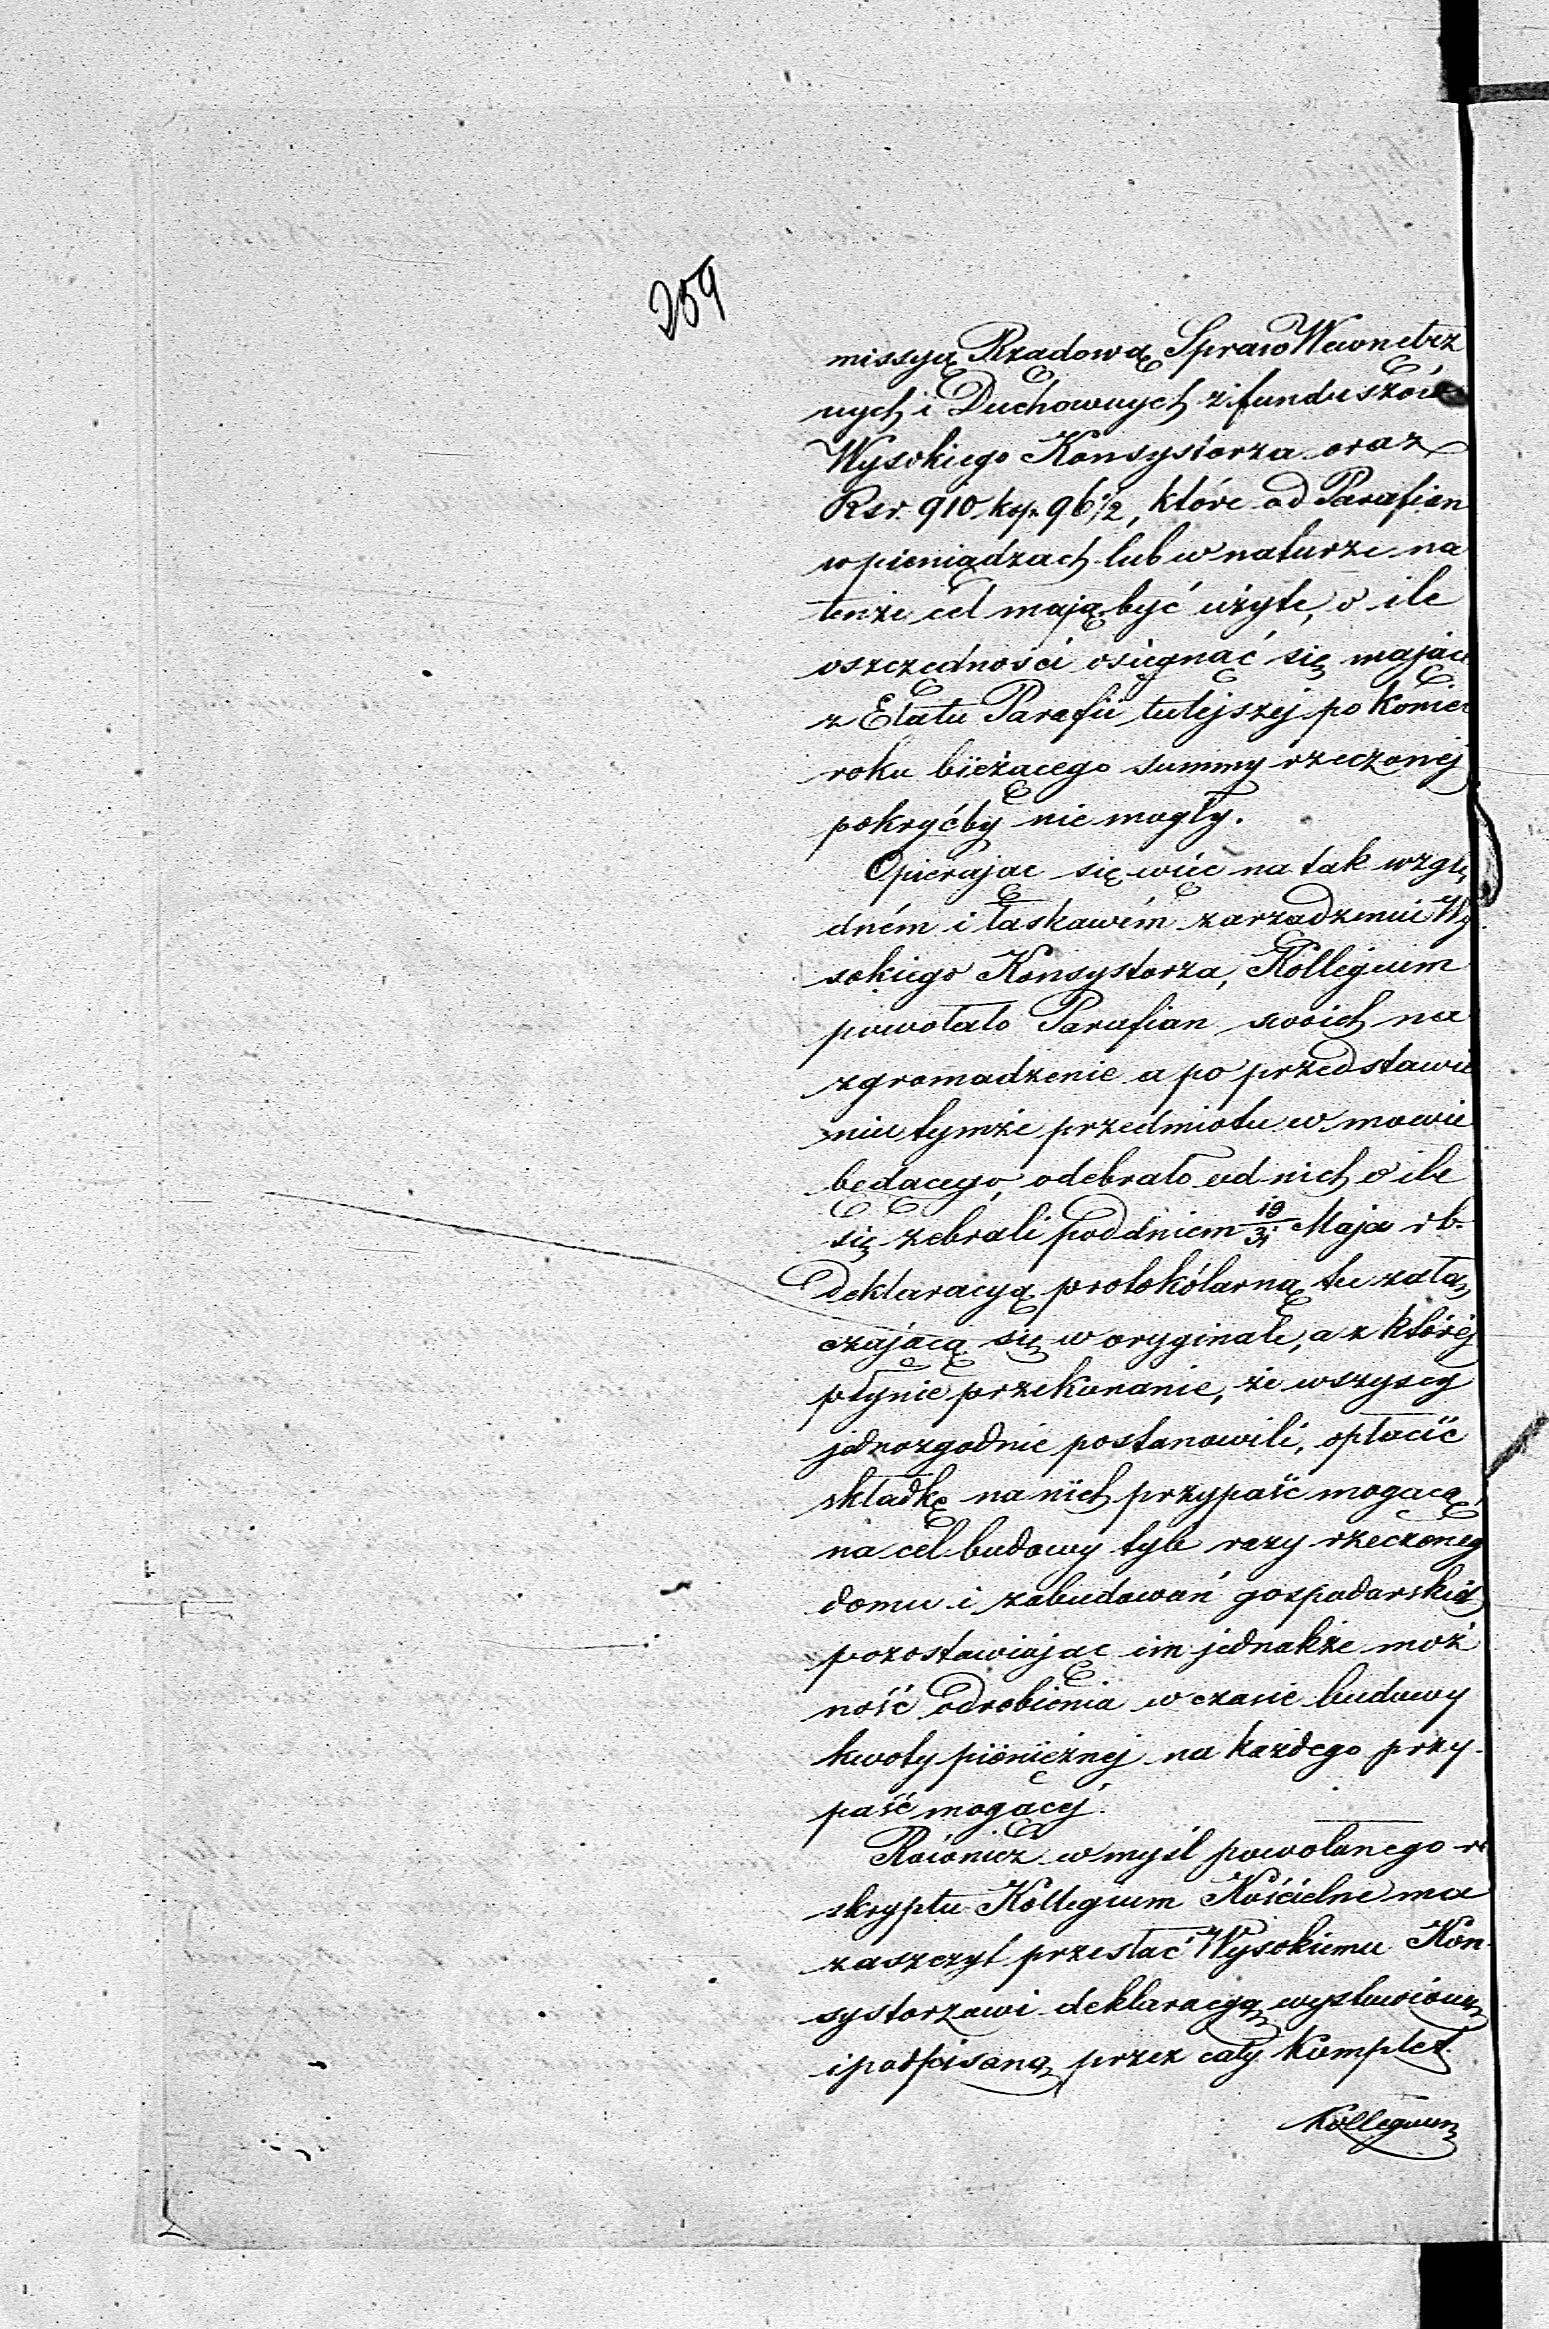 259
missyą Rządową Spraw Wewnętrz
nych i Duchownych z funduszów
Wysokiego Konsystorza oraz
Rsr. 910 kop. 96 1/2, które od Parafian
w pieniądzach lub w naturze na
tenże cel mają być użyte, o ile
oszczędności osięgnąć się mające
z Etatu Parafii tutejszej po koniec
roku bieżącego summy rzeczonej
pokryćby nie mogły.
Opierając się więc na tak wzglę
dném i łaskawém zarządzeniu Wy
sokiego Konsystorza, Kollegium
powołało Parafian swoich na
zgromadzenie a po przedstawie
niu tymże przedmiotu w mowie
będącego, odebrało od nich o ile
się zebrali pod dniem 19/31 Maja r b.
deklaracyą protokólarną tu załą
czającą się w oryginale, a z któréj
płynie przekonanie, że wszyscy
jednozgodnie postanowili, opłacić
składkę na nich przypaść mogącą,
na cel budowy tyle razy rzeczoneg
domu i zabudowań gospodarskich
pozostawiając im jednakże moż
ność odrobienia w czasie budowy
kwoty pieniężnej na każdego przy-
paść mogącej.
Również w myśl powołanego re
skryptu Kollegium Kościelne ma
zaszczyt przesłać Wysokiemu Kon-
systorzowi deklaracyą wystawioną
i podpisaną przez cały komplet
Kollegium